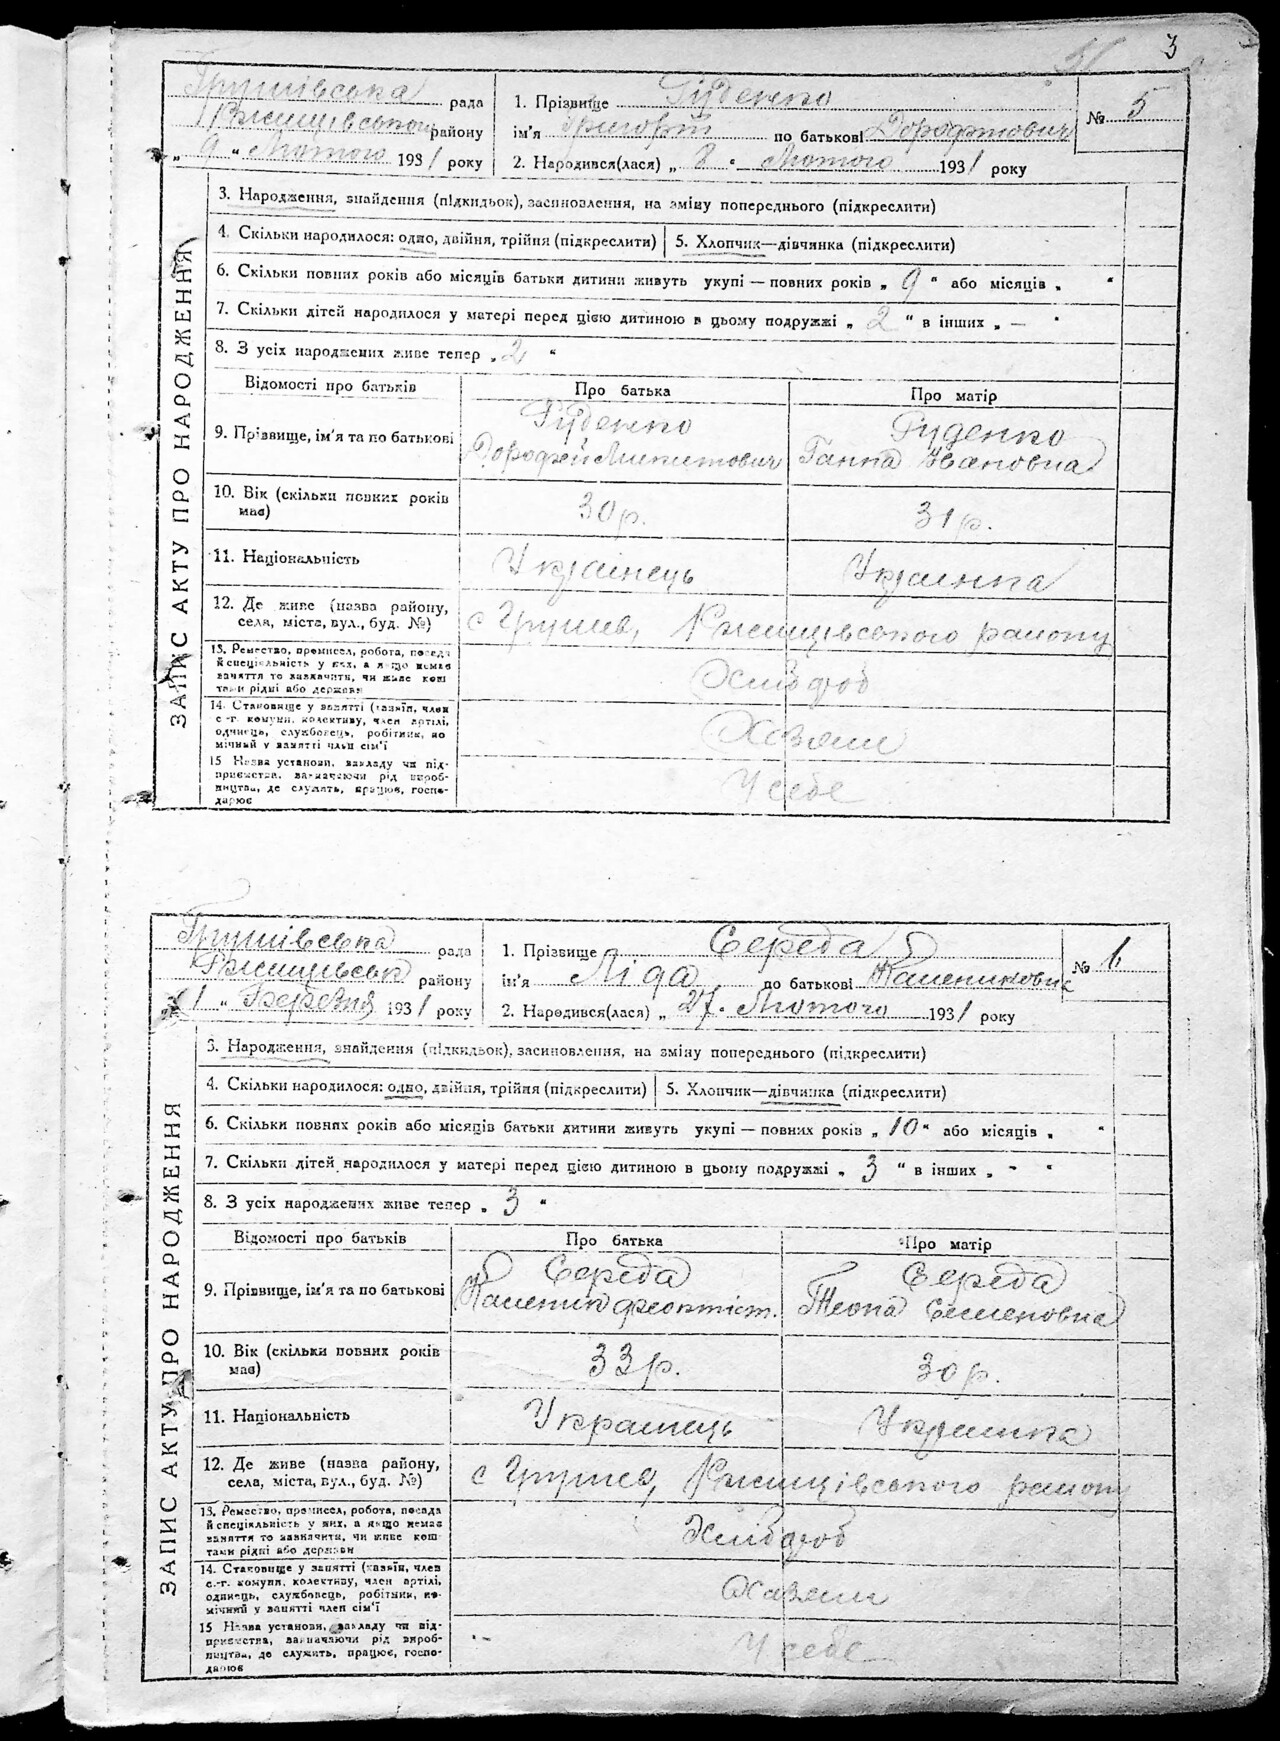 3
Грушівська рада
Ржищівського району
„ 9 “ Лютого 1931 року
1. Прізвище Руденко
ім'я Григорій по батькові Дорофійович
2. Народився(лася) „ 8 “ Лютого 1931 року
№ 5
ЗАПИС АКТУ ПРО НАРОДЖЕННЯ
3. Народження, знайдення (підкидьок), засиновлення, на зміну попереднього (підкреслити)
4. Скільки народилося: одно, двійня, трійня (підкреслити) 5. Хлопчик—дівчинка (підкреслити)
6. Скільки повних років або місяців батьки дитини живуть укупі — повних років „ 9 “ або місяців „ “
7. Скільки дітей народилося у матері перед цією дитиною в цьому подружжі „ 2 “ в інших „ — “
8. З усіх народжених живе тепер „ 2 “
Відомості про батьків Про батька Про матір
9. Прізвище, ім'я та по батькові
Руденко
Дорофей Микитович
Руденко
Ганна Івановна
10. Вік (скільки повних років
має)
30 р. 31 р.
11. Національність Українець Українка
12. Де живе (назва району,
села, міста, вул., буд. №)
с Грушев, Ржищівського району
13. Ремество, промисел, робота, посада
й спеціяльність у них, а якщо немає
заняття то зазначити, чи живе кош
тами рідні або держави
Хлібороб
14. Становище у занятті (хазяїн, член
с.-г. комуни, колективу, член артілі,
одинець, службовець, робітник, по
мічний у занятті член сім'ї
Хазяин
15 Назва установи, закладу чи під-
приємства, зазначаючи рід вироб-
ництва, де служить, працює, госпо-
дарює
У себе
Грушівська рада
Ржищівськ району
„ 1 “ Березня 1931 року
1. Прізвище Середа
ім'я Ліда по батькові Калениковна
2. Народився(лася) „ 27 “ Лютого 1931 року
№ 6
ЗАПИС АКТУ ПРО НАРОДЖЕННЯ
3. Народження, знайдення (підкидьок), засиновлення, на зміну попереднього (підкреслити)
4. Скільки народилося: одно, двійня, трійня (підкреслити) 5. Хлопчик—дівчинка (підкреслити)
6. Скільки повних років або місяців батьки дитини живуть укупі — повних років „ 10 “ або місяців „ “
7. Скільки дітей народилося у матері перед цією дитиною в цьому подружжі „ 3 “ в інших „ - “
8. З усіх народжених живе тепер „ 3 “
Відомості про батьків Про батька Про матір
9. Прізвище, ім'я та по батькові
Середа
Каленик Феоктіст.
Середа
Текла Семеновна
10. Вік (скільки повних років
має)
33 р. 30 р.
11. Національність Украинець Украинка
12. Де живе (назва району,
села, міста, вул., буд. №)
с Грушев, Ржищівського району
13. Ремество, промисел, робота, посада
й спеціяльність у них, а якщо немає
заняття то зазначити, чи живе кош
тами рідні або держави
Хлібороб
14. Становище у занятті (хазяїн, член
с.-г. комуни, колективу, член артілі,
одинець, службовець, робітник, по-
мічний у занятті член сім'ї
Хазяин
15 Назва установи, закладу чи під-
приємства, зазначаючи рід вироб-
ництва, де служить, працює, госпо-
дарює
У себе